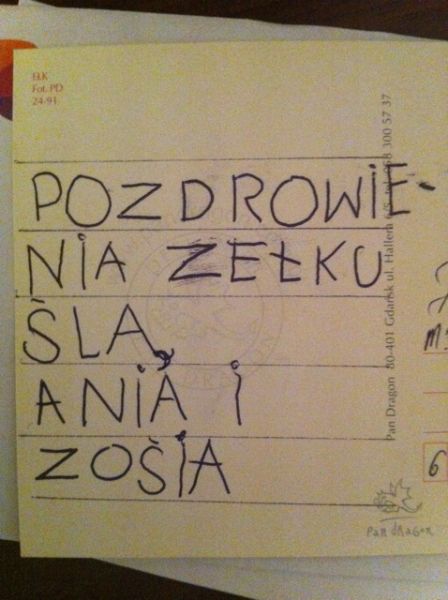 EŁK
Fot. PD
24-91
POZDROWIE-
NIA ZEŁKU
ŚLĄ
ANIA i
ZOSiA
Pan Dragon 80-401 Gdańsk ul. Hallera
300 57 37
pan dragon
6